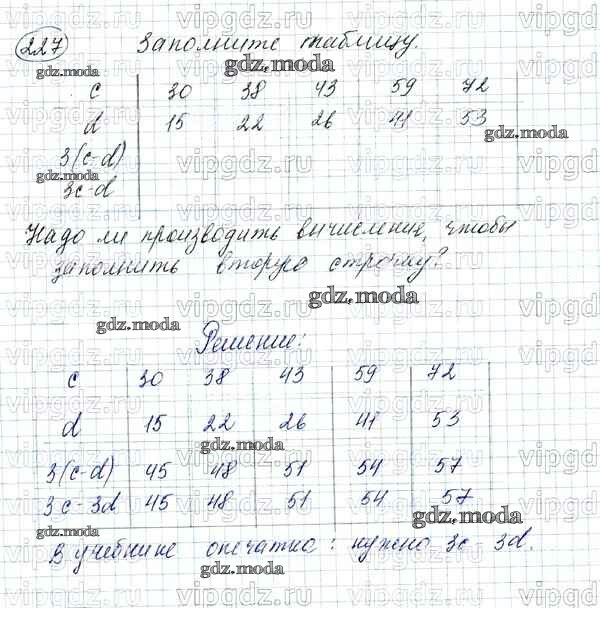 227 Заполните таблицу.
c 30 38 43 59 72
d 15 22 26 41 53
3(c-d)
3c-d
Надо ли производить вычисление, чтобы
заполнить вторую строчку?
Решение:
c 30 38 43 59 72
d 15 22 26 41 53
3(c-d) 45 48 51 54 57
3c-3d 45 48 51 54 57
В учебнике опечатка: нужно 3c-3d.
gdz.moda
vipgdz.ru